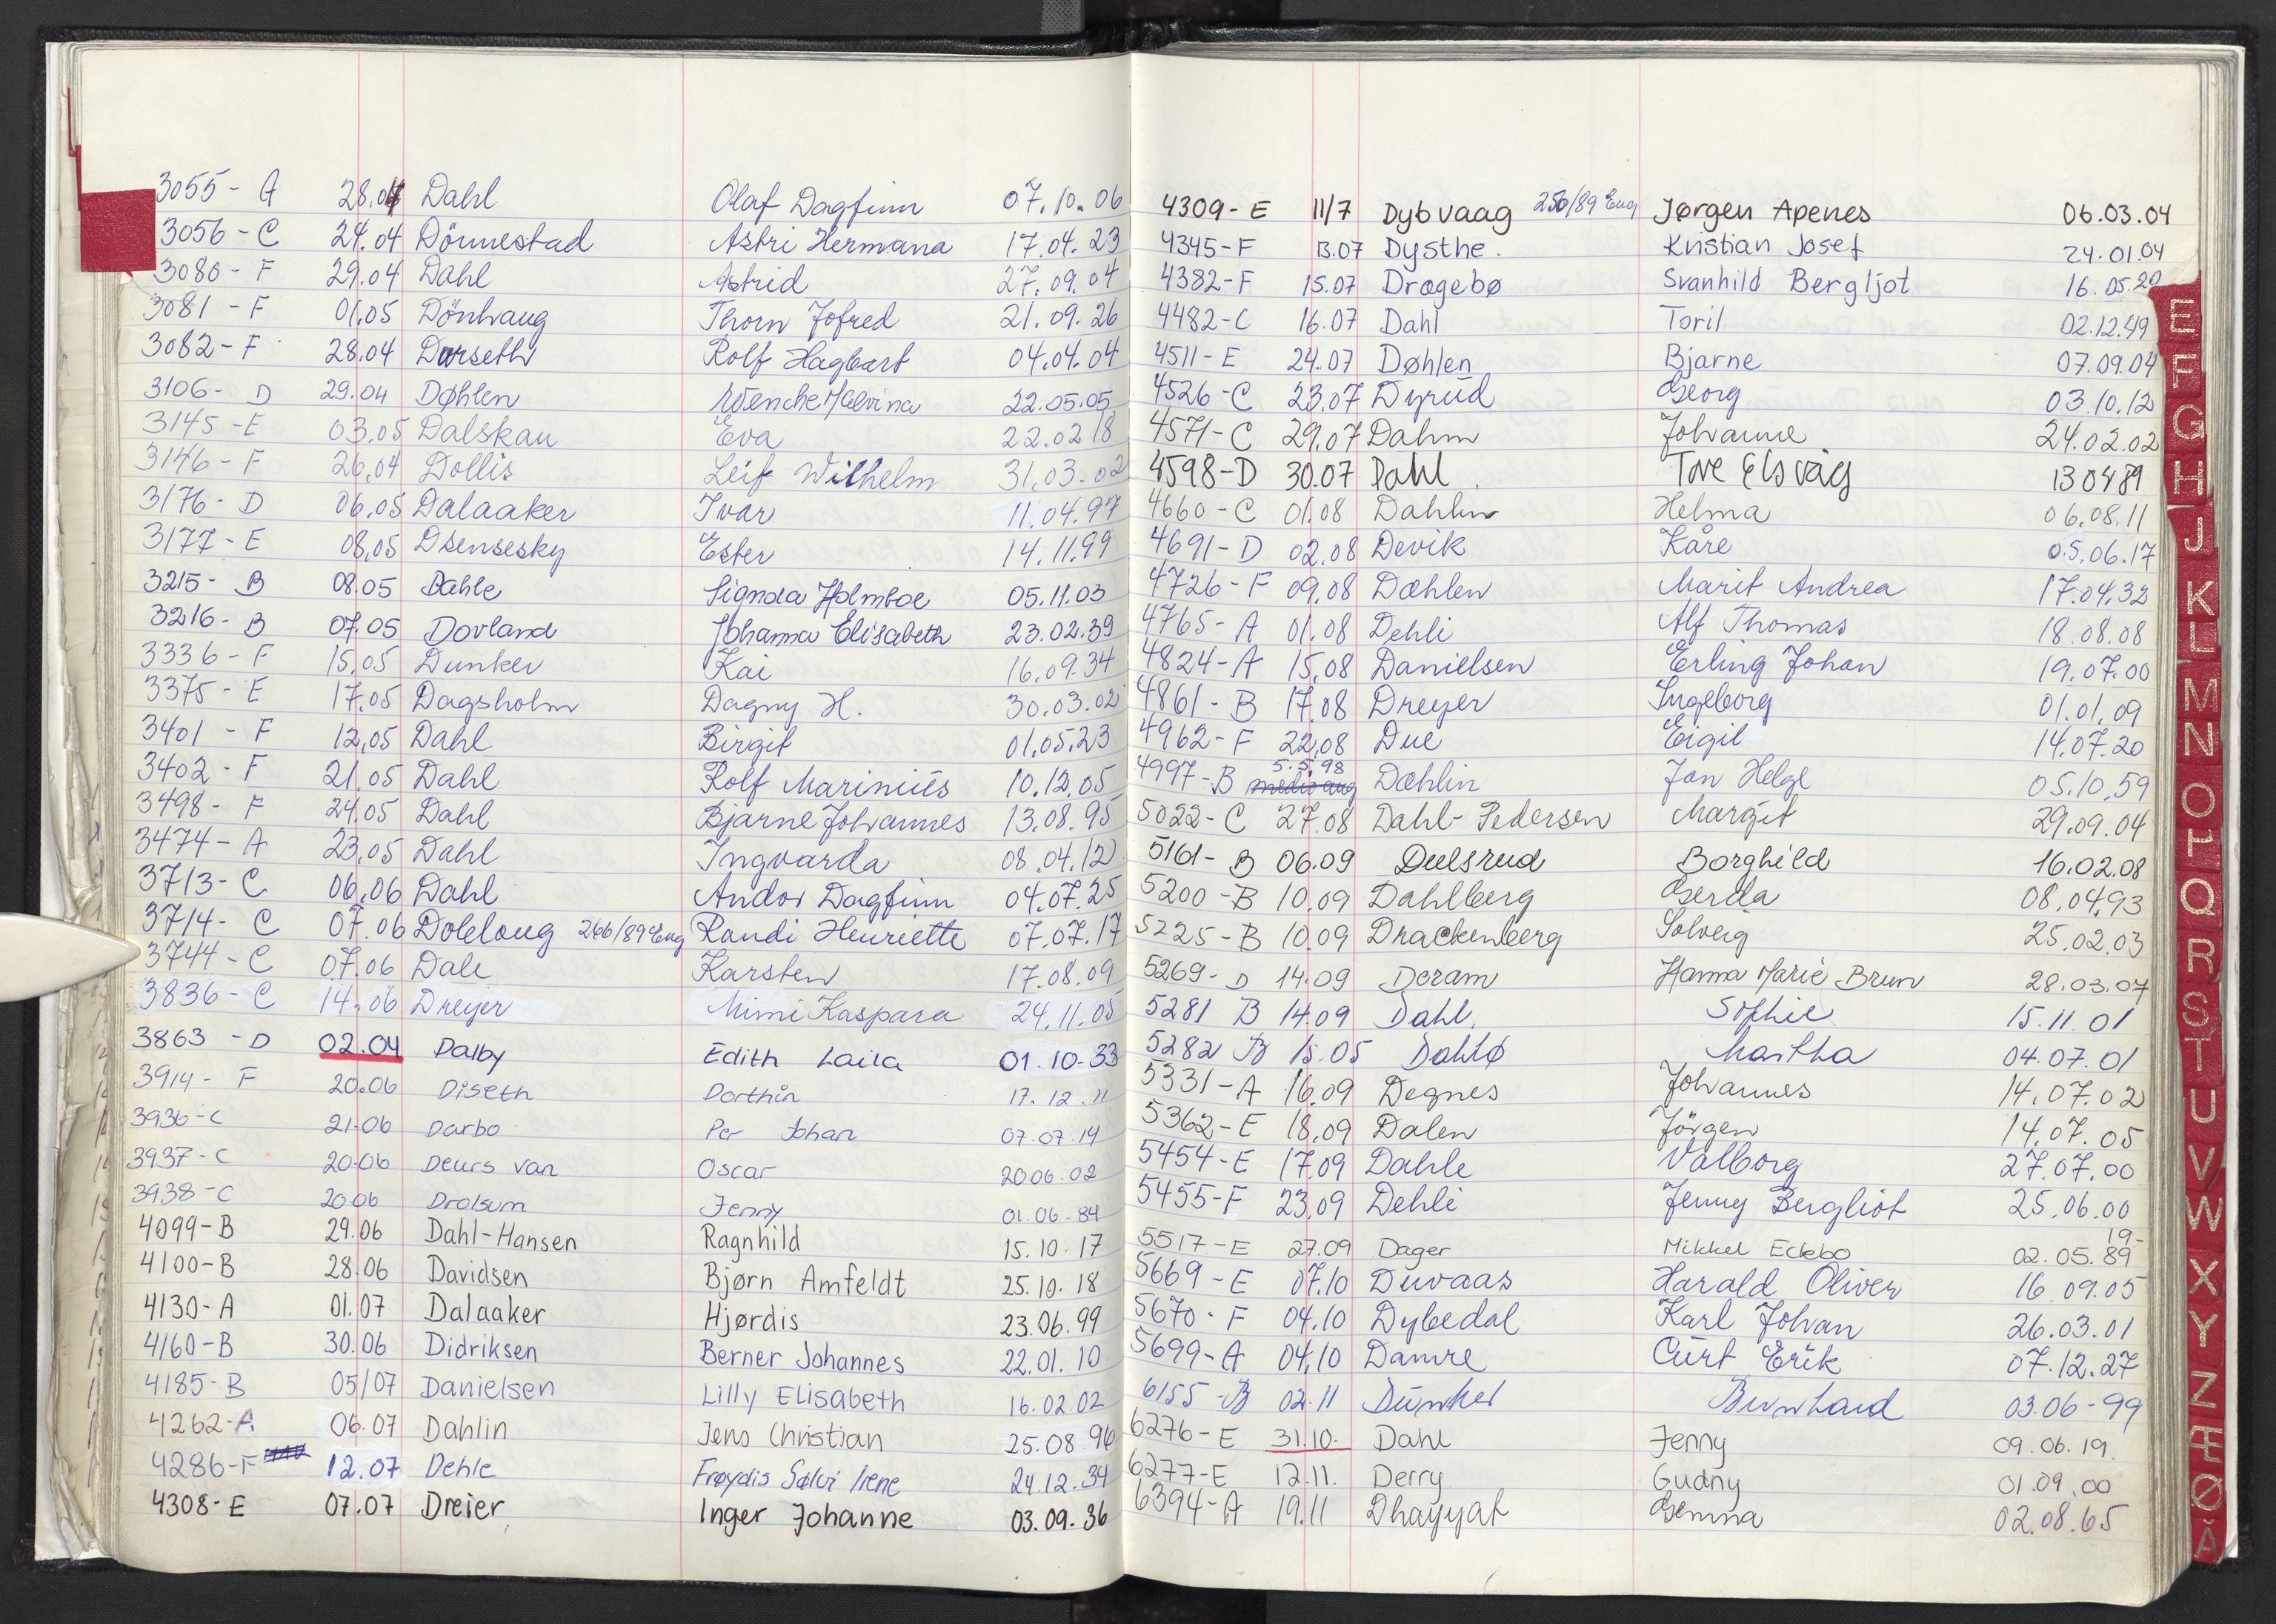 3055 - A 28.04 Dahl Olaf Dagfinn 07.10.06
3056 - C 24.04 Dönnestad Astri Hermana 17.04.23
3080 - F 29.04 Dahl Astrid 27.09.04
3081 - F 01.05 Dönhaug Thorn Jofred 21.09.26
3082 - F 28.04 Rolf Hagbart 04.04.04
3106 - D 29.04 Døhlen Wenche Malvina 22.05.05
3145 - E 03.05 Dalskau Eva 22.02 18
3146 - F 26.04 Dollis Leif Wilhelm 31.03.02
3176 - D 06.05 Dalaaker Ivar 11.04.97
3177 - E 08.05 Dsensesky Ester 14.11.99
3215 - B 08.05 Dahle Signora Holmboe 05.11.03
3216 - B 07.05 Dovland Johanna Elisabeth 23.02.39
3336 - F 15.05 Dunker Kai 16.09.34
3375 - E 17.05 Dagsholm Dagny H. 30.03.02
3401 - F 12.05 Dahl Birgit 01.05.23
3402 - F 21.05 Dahl Rolf Marinius 10.12.05
3498 - F 24.05 Dahl Bjarne Johannes 13.08.95
3474 - A 23.05 Dahl Ingvarda 08.04.12
3713 - C 06.06 Dahl Andor Dagfinn 04.07.25
3714 - C 07.06 Doleloug 266/89 Eng Randi Henriette 07.07.17
3744 - C 07.06 Dale Karsten 17.08.09
3836 - C 14.06 Dreyer Mimi Kaspara 24.11.05
3863 - D 02.04 Dalby Edith Laila 01.10.33
3914 - F 20.06 Diseth Dorthin 17.12.11
3936 - C 21.06 Darbo Per Johan 07.07.14
3937 - C 20.06 Deurs van Oscar 20.06.02
3938 - C 20.06 Drolsum Jenny 01.06-84
4099 - B 29.06 Dahl-Hansen Ragnhild 15.10.17
4100 - B 28.06 Davidsen Bjørn Amfeldt 25.10.18
4130 - A 01.07 Dalaaker Hjørdis 23.06.99
4160 - B 30.06 Didriksen Berner Johannes 22.01.10
4185 - B 05/07 Danielsen Lilly Elisabeth 16.02.02
4262 - A 06.07 Dahlin Jens Christian 25.08.96
4286 - F 12.07 Dehle Frøydis Sølvi Irene 24.12.34
4308 - E 07.07 Dreier Inger Johanne 03.09.36
4309 - E 11/7 Dybvaag 250/89 Eng Jørgen Apenes 06.03.04
4345 - F 13.07 Dysthe. Kristian Josef 24.01.04
4382 - F 15.07 Dragebø Svanhild Bergljot 16.05.20
4482 - C 16.07 Dahl Toril 02.12.49
4511 - E 24.07 Døhlen Bjarne 07.09.04
4526 - C 23.07 Dyrud Georg 03.10.12
4571 - C 29.07 Dahm Johanne 24.02.02
4598 - D 30.07 Dahl Tove Elsvåg 130489
4660 - C 01.08 Dahlin Helma 06.08.11
4691 - D 02.08 Devik Kåre 05.06.17
4726 - F 09.08 Dæhlen Marit Andrea 17.04.32
4765 - A 01.08 Dehli Alf Thomas 18.08.08
4824 - A 15.08 Danielsen Erling Johan 19.07.00
4861 - B 17.08 Dreyer Ingeborg 01.01.09
4962 - F 22.08 Due Eigil 14.07.20
4997 - B 5.5.98 medio aug Dæhlin Jan Helge 05.10.59
5022 - C 27.08 Dahl-Pedersen Margit 29.09.04
5161 - B 06.09 Deelsrud Borghild 16.02.08
5200 - B 10.09 Dahlberg Gerda 08.04.93
5225 - B 10.09 Drackenberg Solveig 25.02.03
5269 - D 14.09 Deram Hanna Marie Brun 28.03.07
5281 B 14.09 Dahl. Sophie 15.11.01
5282 B 15.05 Dahlø Martha 04.07.01
5331 - A 16.09 Degnes Johannes 14.07.02
5362 - E 18.09 Dalen Jörgen 14.07.05
5454 - E 17.09 Dahle Valborg 27.07.00
5455 - F 23.09 Dehli Jenny Bergliot 25.06.00
5517 - E 27.09 Dager Mikkel Eckbo 02.05.89 19-
5669 - E 07.10 Duvaas Harald Oliver 16.09.05
5670 - F 04.10 Dybedal Karl Johan 26.03.01
5699 - A 04.10 Damre Curt Erik 07.12.27
6155 - B 02.11 Dunker Bernhard 03.06-99
6276 - E 31.10. Dahl Jenny 09.06.19.
6277 - E 12.11. Derry Gudny 01.09.00
6394 - A 19.11 Dhayyat Gemma 02.08.65
E
F
G
H
J
K
L
M
N
O
P
Q
R
S
T
U
V
W
X
Y
Z
Æ
Ø
Å